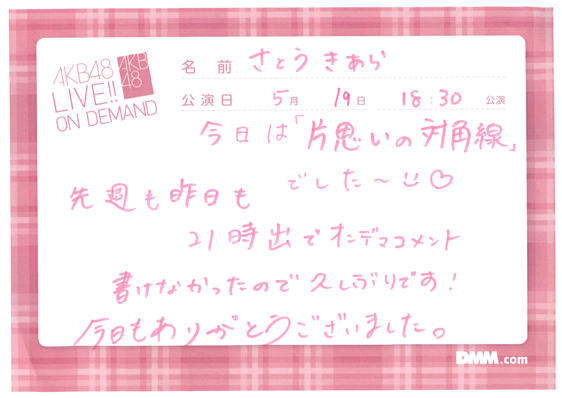 AKB48
LIVE!!
ON DEMAND
AKB
48
名前 さとうきあら
公演日 5月 19日 18:30 公演
今日は「片思いの対角線」
でした〜☺♡
先週も昨日も
21時出でオンデマコメント
書けなかったので久しぶりです!
今日もありがとうございました。
DMM.com